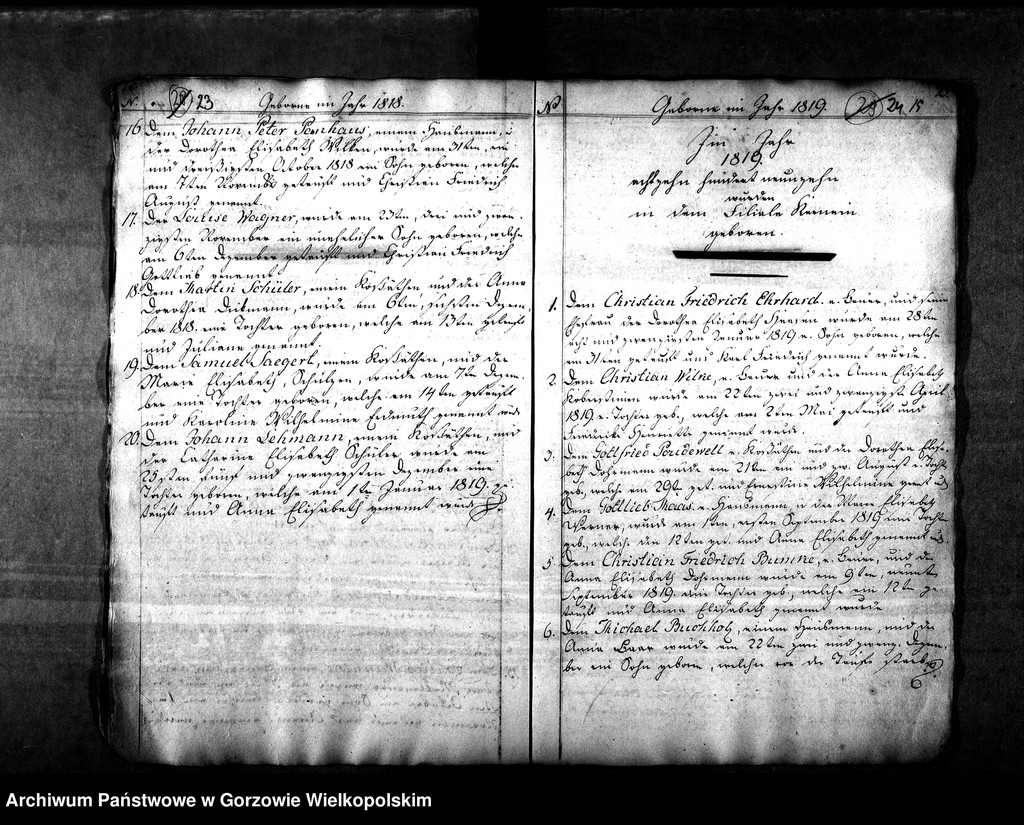 N. 28 23 Geborne im Jahr 1818.
16. Dem Johann Peter Penhaus, einem Hausmann, u
der Dorothea Elisabeth Wilken, wurde am 31ten, ein
und dreißigsten October 1818 ein Sohn geboren, welcher
am 7ten Novembr getauft und Christian Friedrich
August genannt.
17. Der Louise Wagner, wurde am 23ten, drei und zwan-
zigsten November ein unehelicher Sohn geboren, welcher
am 6ten Dezember getauft und Christian Friedrich
Gottlieb genannt.
18. Dem Martin Schüler, einem Kossäthen und der Anna
Dorothea wurde am 6ten, sechsten Dezem-
ber 1818. eine Tochter geboren, welche am 13ten getauft
und Juliane genannt.
19. Dem Samuel Jaegert, einem Kossäthen, und der
Marie Elisabeth Schützen, wurde am 7ten Dezem-
ber eine Tochter geboren, welche am 14ten getauft
und Karoline Wilhelmine genannt
20. Dem Johann Lehmann, einem Kossäthen, und
der Catherine Elisabeth Schüler wurde am
25sten fünf und zwanzigsten Dezember eine
Tochter geboren, welche am 1ten Januar 1819. ge-
tauft und Anna Elisabeth genannt
No Geborne im Jahr 1819. 28 24 15
Im Jahr
1819.
achtzehn hundert neunzehn
wurden
in dem Filiale Kernein
geboren.
1. Dem Christian Friedrich Ehrhard. e. Bauer, und seiner
Ehefrau der Dorothea Elisabeth wurde am 28ten
acht und zwanzigsten Januar 1819 e. Sohn geboren, welcher
am 31ten getauft und Karl Friedrich genannt wurde.
2. Dem Christian Wilke, e. Bauer und der Anna Elisabeth
wurde am 22ten zwei und zwanzigste April
1819 e. Tochter geb, welche am 2ten Mai getauft und
Friedrike Henriette genannt wurde.
3. Dem Gottfried e. Kossäthen und der Dorothea Elisa-
beth Dohrmann wurde am 21ten ein und zw. August e. Tocht
geb, welche am 29ten get. und Ernestine Wilhelmine
4. Dem Gottlieb Maas. e. Hausmann u der Marie Elisabeth
Werner, wurde am 1ten, ersten September 1819 eine Tochter
geb., welche den 12ten get. und Anna Elisabeth genannt
5. Dem Christian Friedrich Bumme, e. Bauer, und der
Anna Elisabeth Dohrmann wurde am 9ten, neunte
September 1819. eine Tochter geb, welche am 12ten ge-
tauft und Anna Elisabeth genannt wurde
6. Dem Michael Buchholz, einem Hausmann, und der
Anna wurde am 22ten zwei und zwanz. Dezem-
ber ein Sohn geboren, welcher vor der Taufe starb
6
Archiwum Państwowe w Gorzowie Wielkopolskim